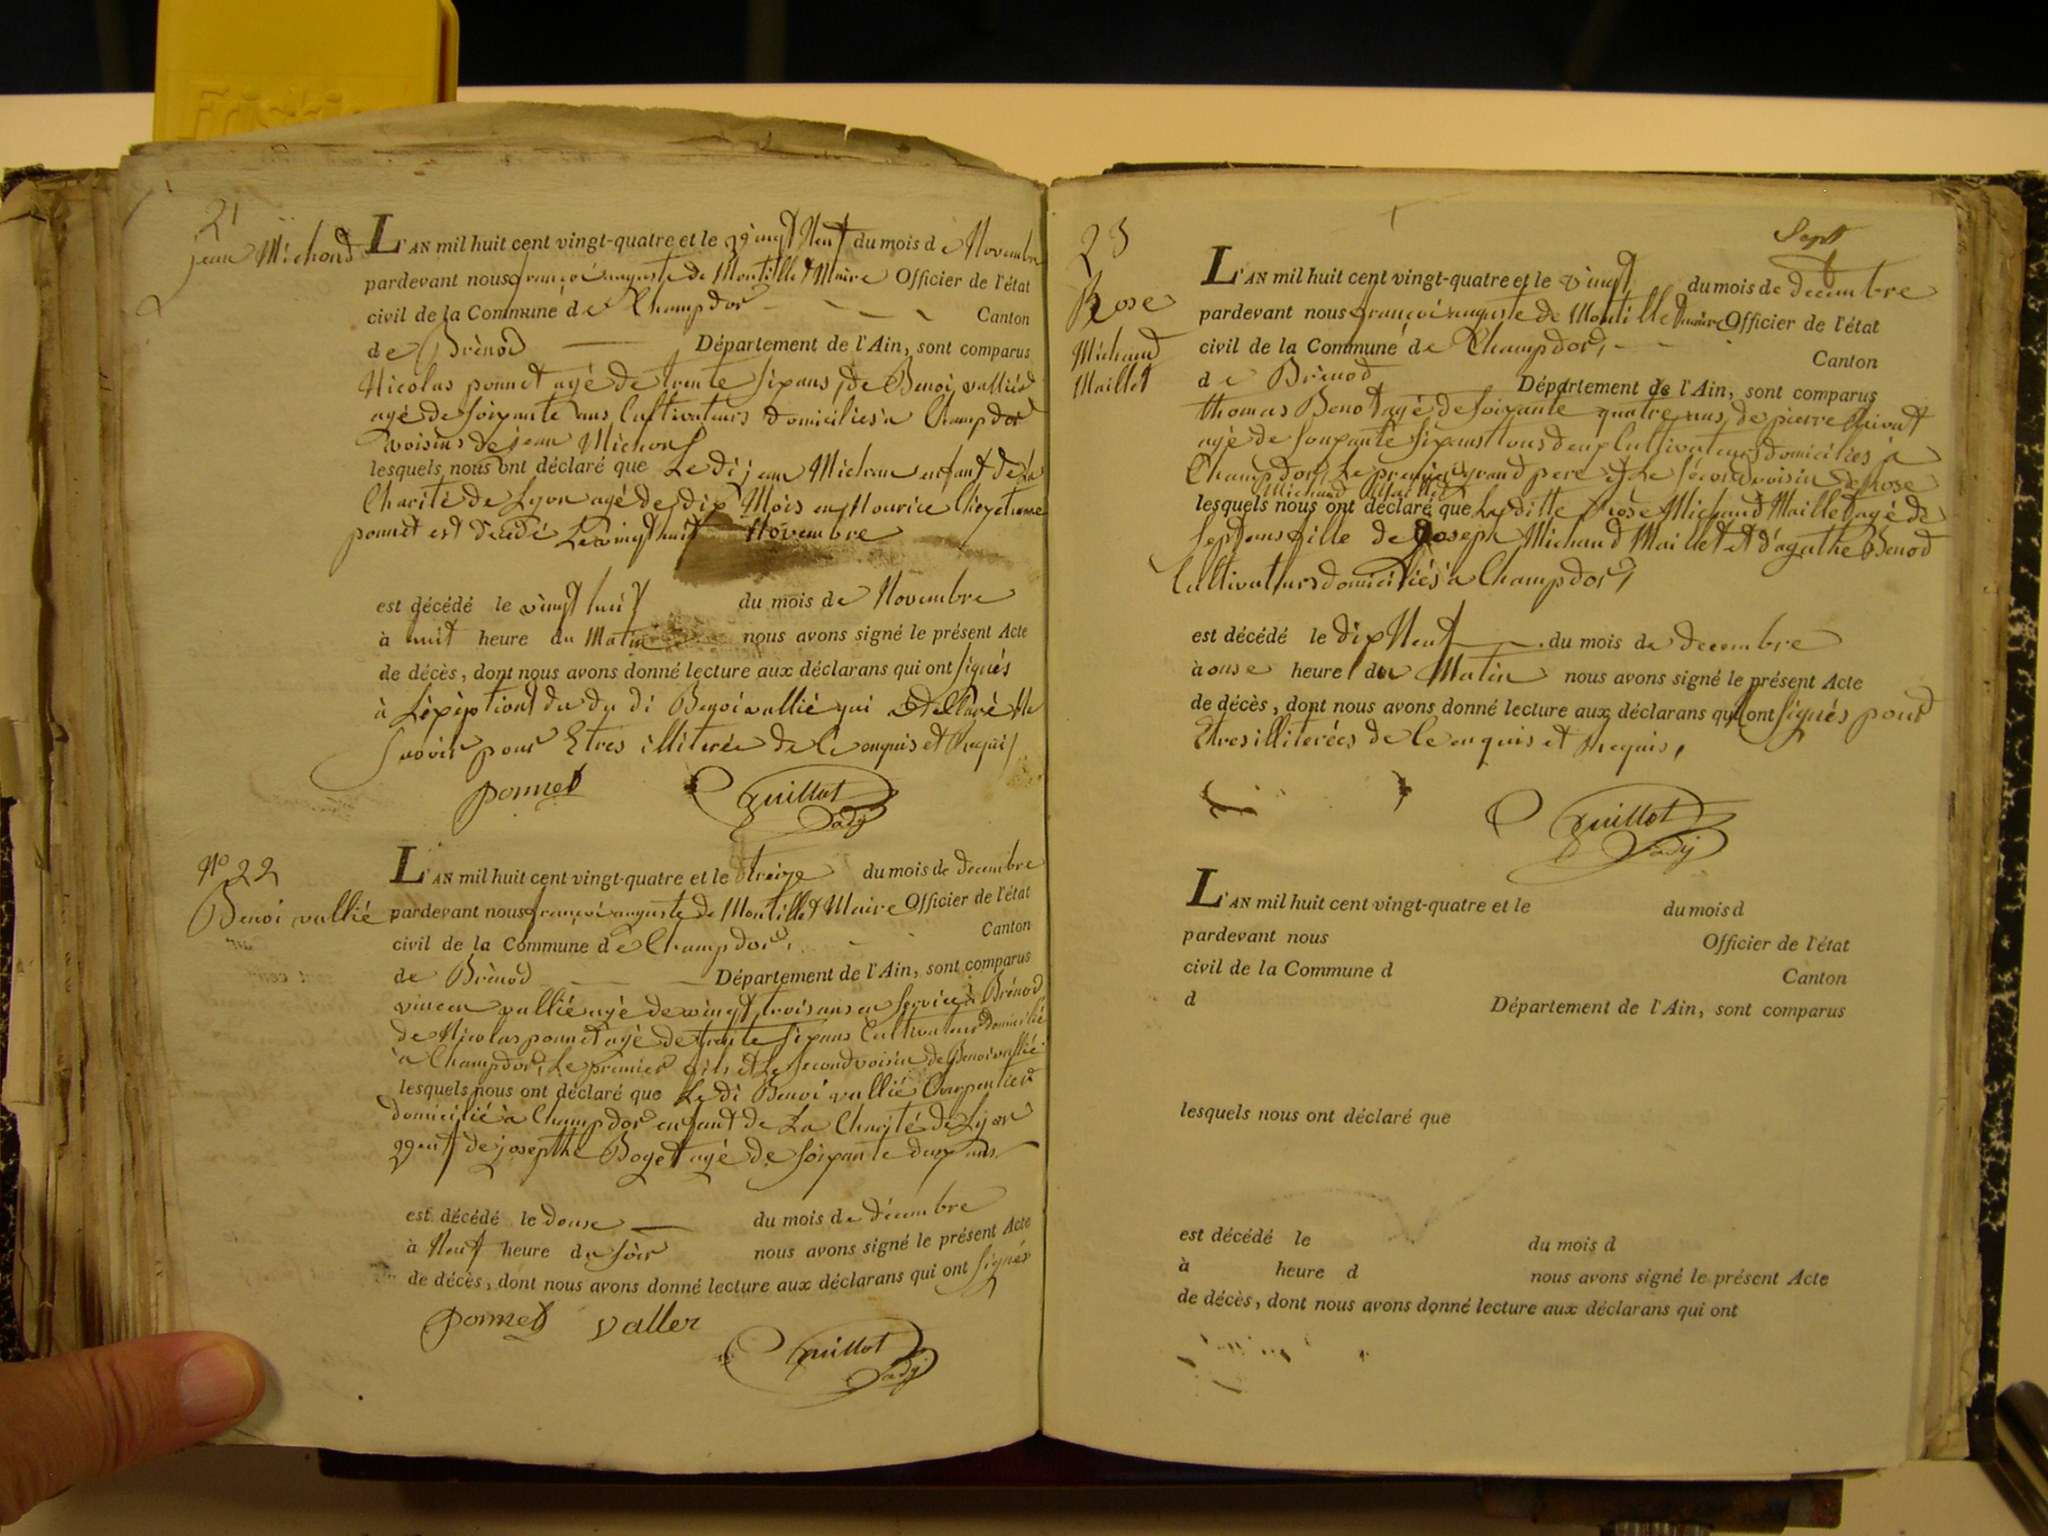 21
jean Michond
L'AN mil huit cent vingt-quatre et le vingt Neuf du mois de Novembre
pardevant nous françoi auguste de Montillet Maire Officier de l'état
civil de la Commune de Champdor Canton
de Brénod Département de l'Ain, sont comparus
Nicolas ponnet agé de trente six ans, de Benoi vallié
agé de soixante ans Cultivateurs domiciliés a Champdor
voisins de jean Michon
lesquels nous ont déclaré que Le di jean Michon enfant de la
Charité de Lyon agé de dix Mois en Nourice
ponnet est décédé Le vingt huit Novembre
est décédé le vingt huit du mois de Novembre
à huit heure du Matin nous avons signé le présent Acte
de décès, dont nous avons donné lecture aux déclarans qui ont signés
à Léxèption du di Benoi vallié qui a déclaré Ne
savoir pour Etres illiterée de Ce enquis et Requis
ponnet Guillot adj
N° 22
Benoi vallié
L'AN mil huit cent vingt-quatre et le treize du mois de decembre
pardevant nous françoi auguste de Montillet Maire Officier de l'état
civil de la Commune de Champdor, Canton
de Brénod Département de l'Ain, sont comparus
vincen vallié agé de vingt trois ans en service à Brénod
de Nicolas ponnet agé de trente six ans Cultivateur domicilié
a Champdor, Le premier fils et Le second voisin de Benoi vallié
lesquels nous ont déclaré que Le di Benoi vallié Charpentier
domicilié à Champdor enfant de La Charité de Lyon
veuf de josepthe Boget agé de soixante deux ans
est décédé le douse du mois de décembre
à Neuf heure du soir nous avons signé le présent Acte
de décès, dont nous avons donné lecture aux déclarans qui ont signés
ponnet vallier
Guillot adj
23
Rose
Michaud
Maillet
Sept
L'AN mil huit cent vingt-quatre et le vingt du mois de decembre
pardevant nous françoi auguste de Montillet maire Officier de l'état
civil de la Commune de Champdor, Canton
de Brénod Département de l'Ain, sont comparus
thomas Benod agé de soixante quatre ans, de pierre
agé de soixante six ans tous deux Cultivateurs domiciliés a
Champdor, Le premier grand pere et Le second voisin de Rose
Michaud Maillet
lesquels nous ont déclaré que La ditte Rose Michaud Maillet agé de
sept ans fille de Joseph Michaud Maillet et d'agathe Benod
Cultivateurs domiciliés a Champdor,
est décédé le dix Neuf du mois de decembre
à onse heure du Matin nous avons signé le présent Acte
de décès, dont nous avons donné lecture aux déclarans qui ont signés pour
Etres illiterées de Ce enquis et Requis,
Guillot
adj
L'AN mil huit cent vingt-quatre et le du mois d
pardevant nous Officier de l'état
civil de la Commune d Canton
d Département de l'Ain, sont comparus
lesquels nous ont déclaré que
est décédé le du mois d
à heure d nous avons signé le présent Acte
de décès, dont nous avons donné lecture aux déclarans qui ont